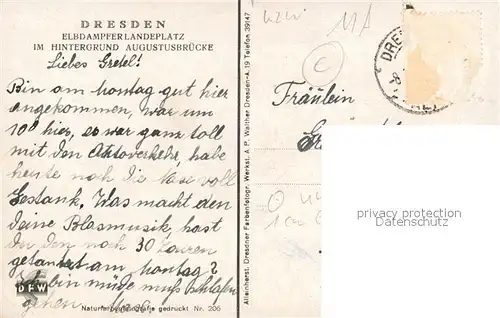 DRESDEN
ELBDAMPFERLANDEPLATZ
IM HINTERGRUND AUGUSTUSBRÜCKE
Liebes Gretel!
Bin am Montag gut hier
angekommen, war um
10⁰⁰ hier, es war ganz toll
mit den Autoverkehr, habe
heute noch die Nase voll
Gestank. Was macht den
deine Blasmusik, hast
du den noch 30 Touren
getantzt am Montag?
Ich bin müde muß schlafen
gehen
DFW
Naturfarbenfotografie gedruckt Nr. 206
Alleinherst. Dresdner Farbenfotogr. Werkst. A. P. Walther Dresden-A. 19 Telefon 39147
Fräulein
DRES
privacy protection
privacy protection